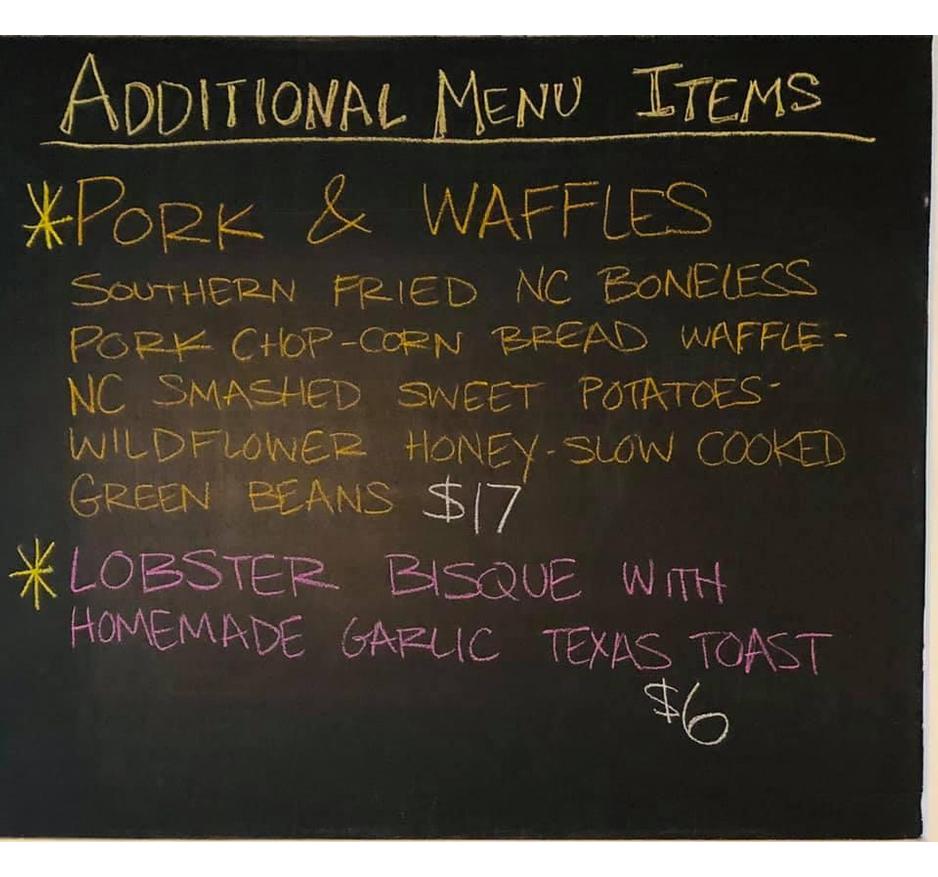 ADDITIONAL MENU ITEMS
*PORK & WAFFLES
SOUTHERN FRIED NC BONELESS
PORK CHOP-CORN BREAD WAFFLE-
NC SMASHED SWEET POTATOES-
WILDFLOWER HONEY-SLOW COOKED
GREEN BEANS $17
*LOBSTER BISQUE WITH
HOMEMADE GARLIC TEXAS TOAST
$6